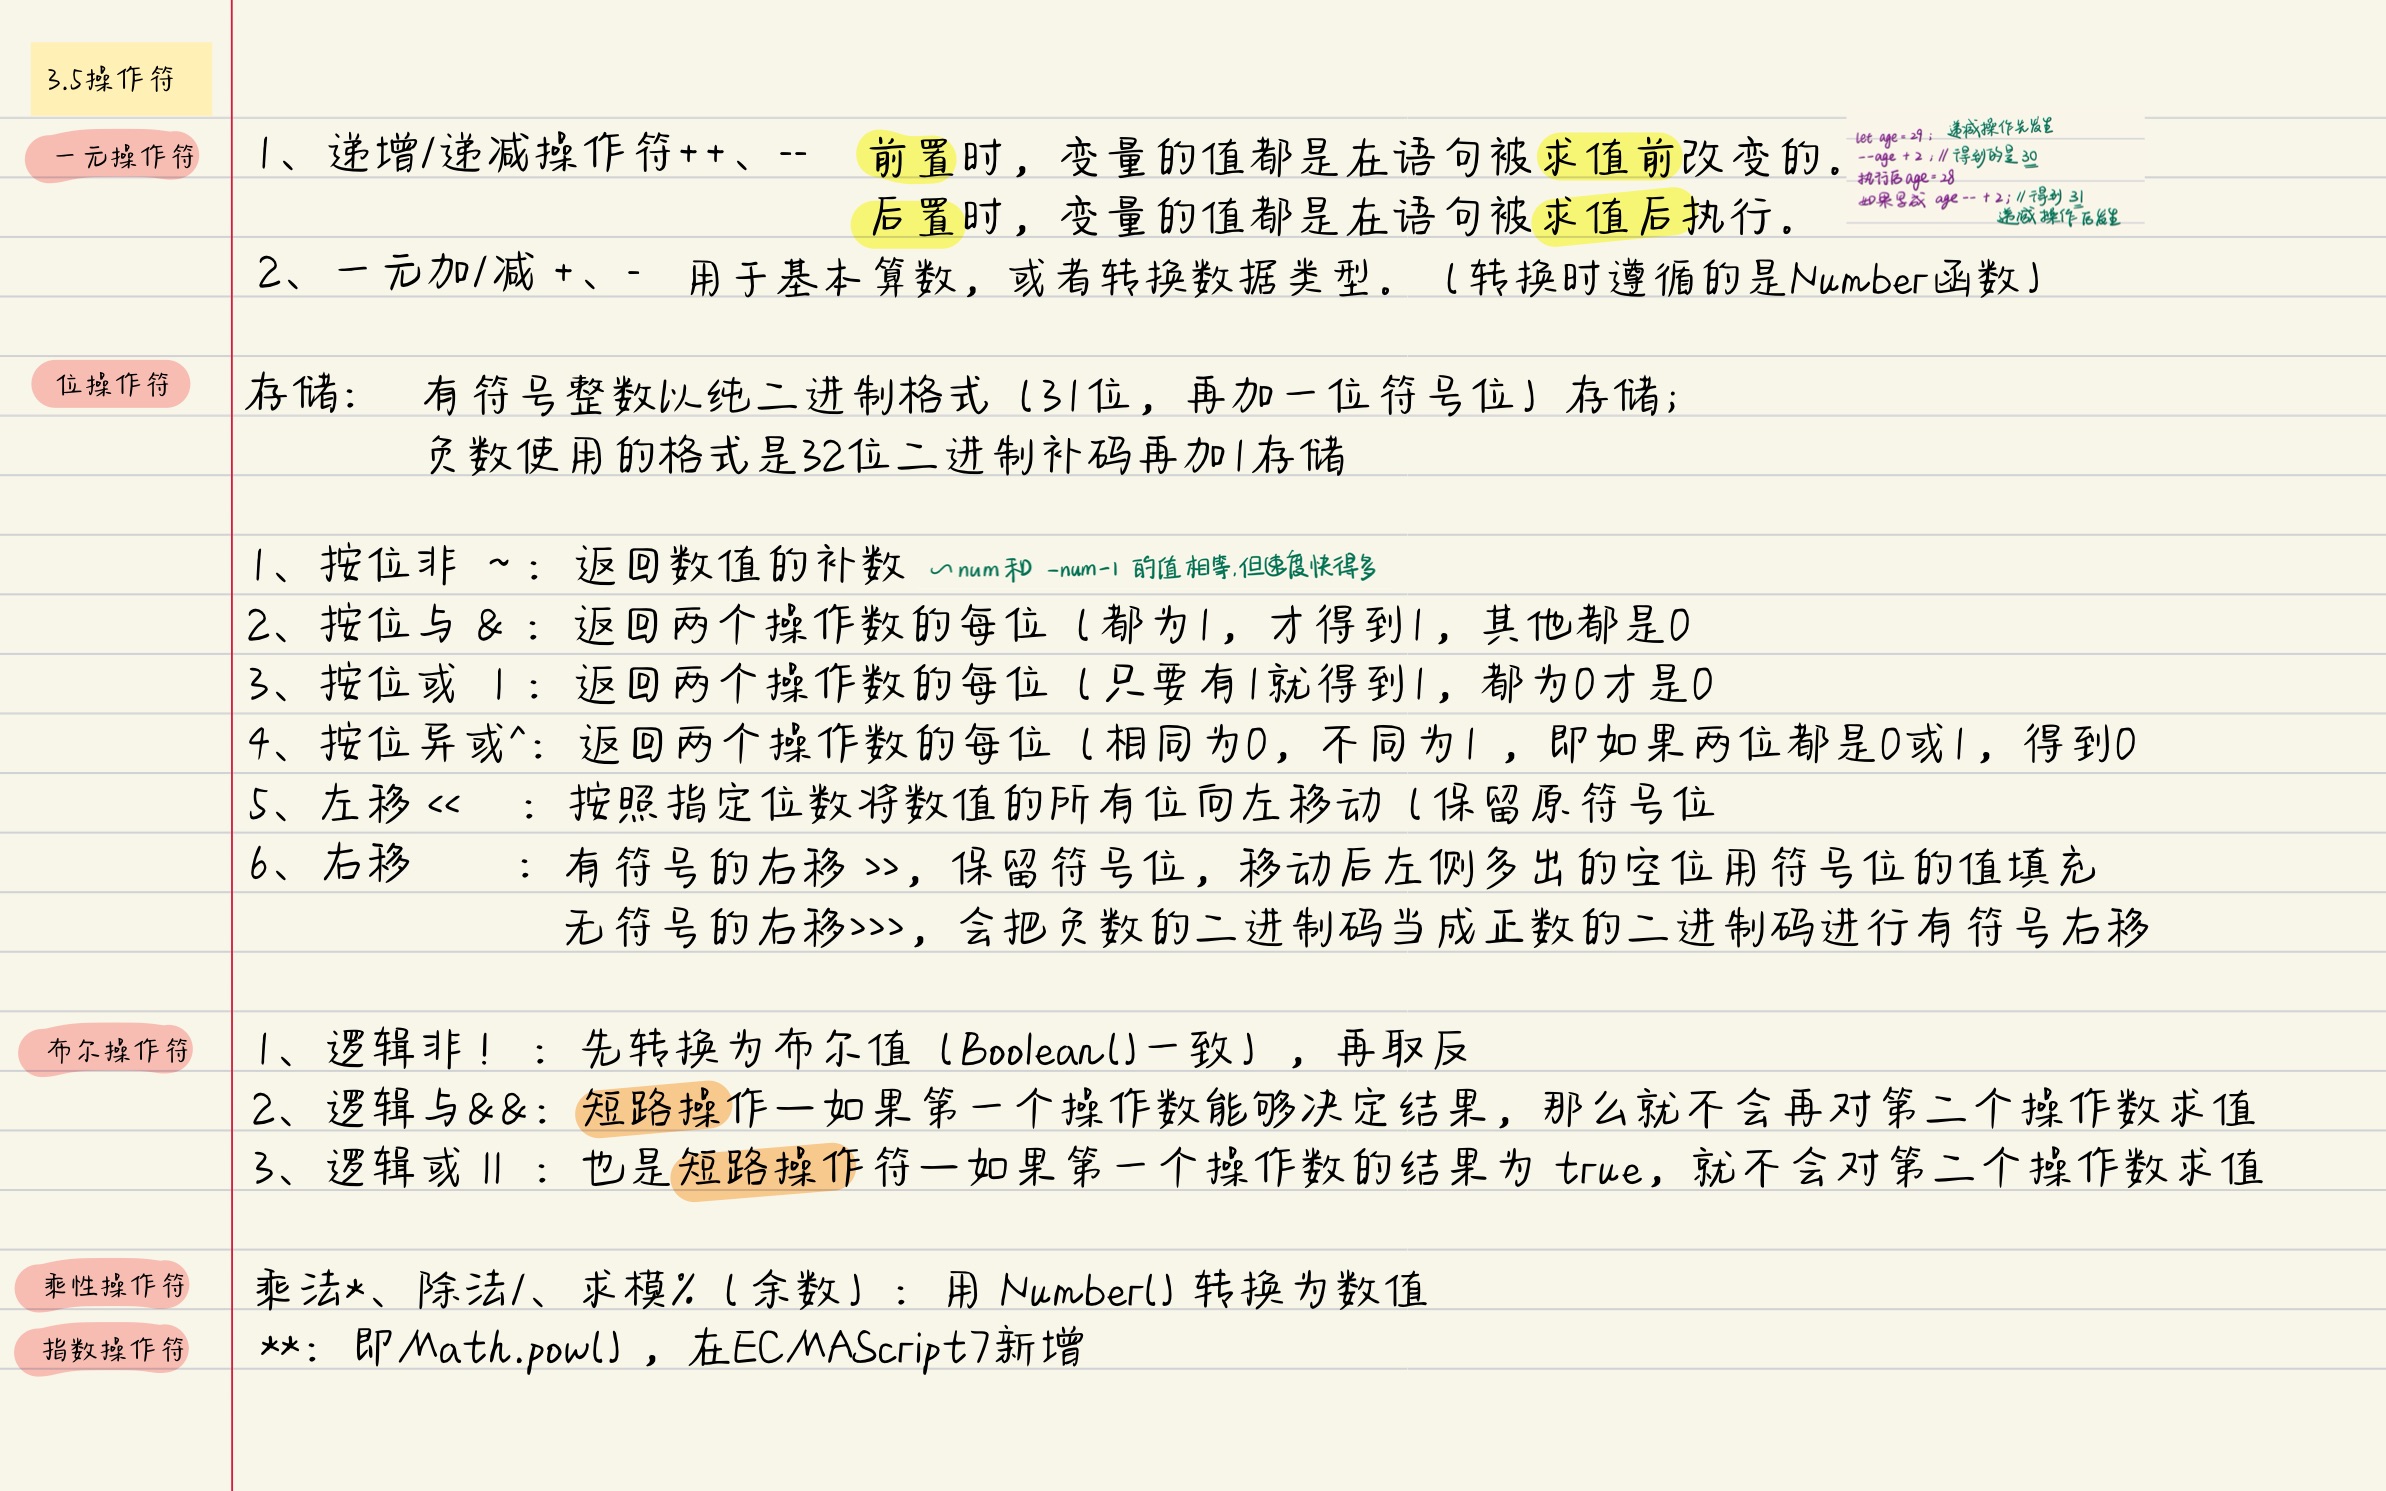 3.5操作符
一元操作符
1、递增/递减操作符++、-- 前置时，变量的值都是在语句被求值前改变的。
let age = 29; 递减操作先发生
--age + 2; // 得到的是 30
执行后 age = 28
如果写成 age -- + 2; // 得到 31
递减操作后发生
后置时，变量的值都是在语句被求值后执行。
2、一元加/减 +、- 用于基本算数，或者转换数据类型。（转换时遵循的是Number函数）
位操作符
存储： 有符号整数以纯二进制格式（31位，再加一位符号位）存储；
负数使用的格式是32位二进制补码再加1存储
1、按位非 ~： 返回数值的补数 ~num和 -num-1 的值相等,但速度快得多
2、按位与 &： 返回两个操作数的每位（都为1，才得到1，其他都是0
3、按位或 |： 返回两个操作数的每位（只要有1就得到1，都为0才是0
4、按位异或^： 返回两个操作数的每位（相同为0，不同为1，即如果两位都是0或1，得到0
5、左移 << ： 按照指定位数将数值的所有位向左移动（保留原符号位
6、右移 ： 有符号的右移 >>，保留符号位，移动后左侧多出的空位用符号位的值填充
无符号的右移>>>，会把负数的二进制码当成正数的二进制码进行有符号右移
布尔操作符
1、逻辑非！： 先转换为布尔值（Boolean()一致），再取反
2、逻辑与&&： 短路操作—如果第一个操作数能够决定结果，那么就不会再对第二个操作数求值
3、逻辑或 || ： 也是短路操作符—如果第一个操作数的结果为 true，就不会对第二个操作数求值
乘性操作符
乘法*、除法/、求模%（余数）： 用 Number() 转换为数值
指数操作符
**： 即Math.pow()，在ECMAScript7新增